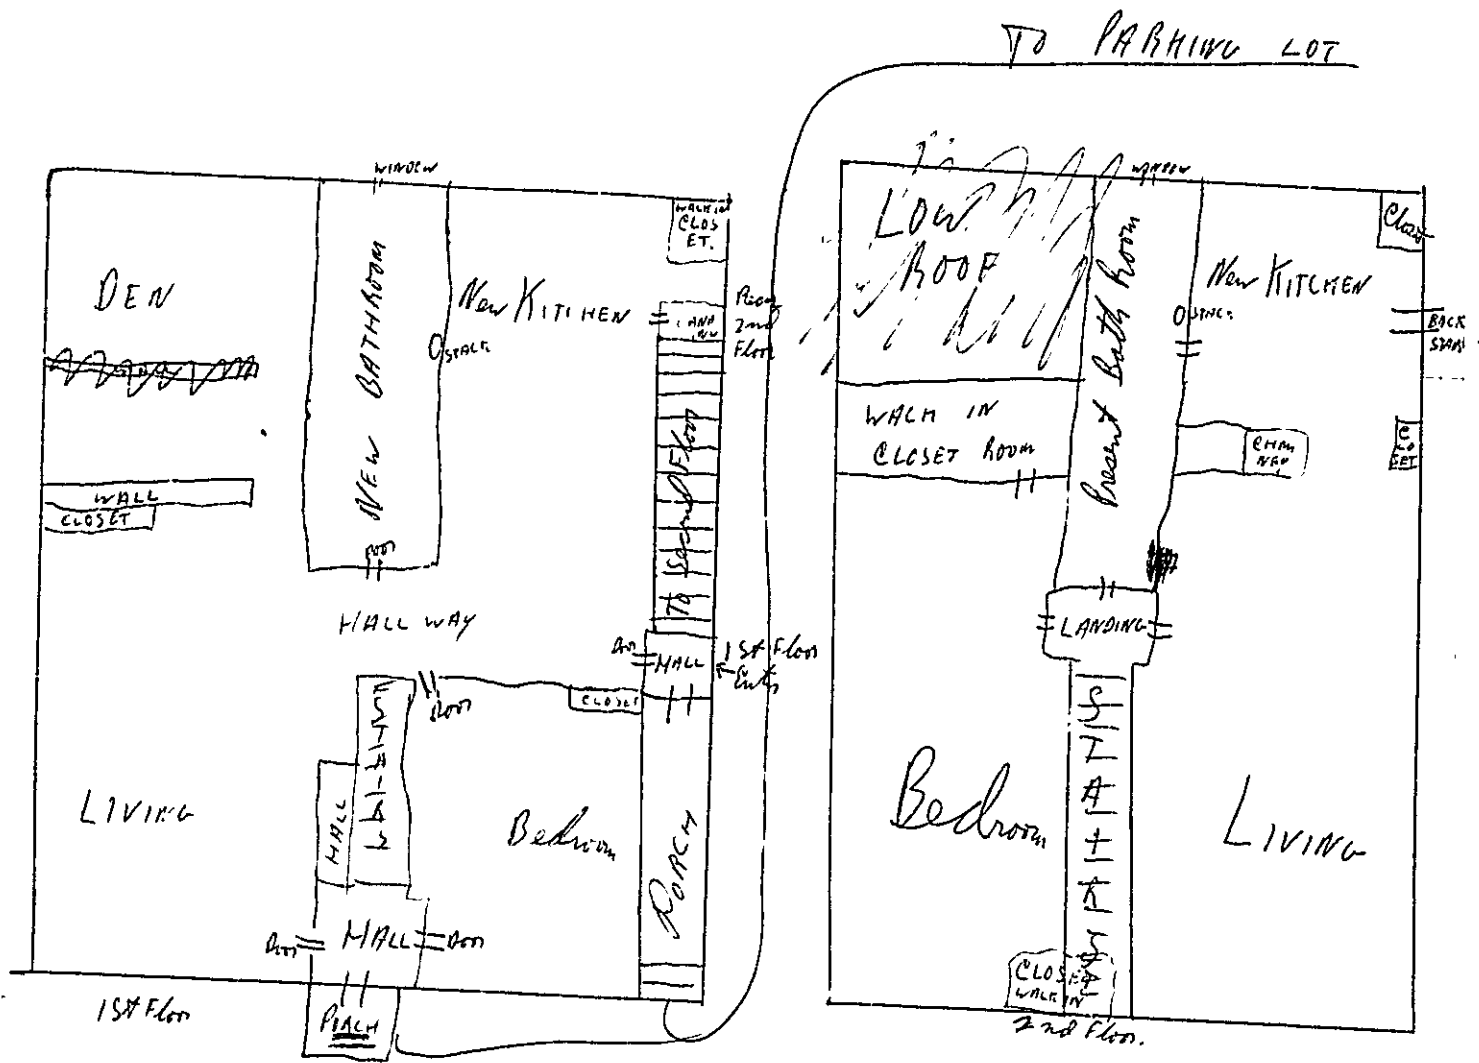 TO PARKING LOT
WINDOW
WALK IN
CLOS
ET.
DEN
NEW BATHROOM
New KITCHEN
STACK
2nd
Floor
To Second Floor
WALL
CLOSET
DOOR
HALL WAY
DOOR
HALL
1st Floor
Entry
DOOR
CLOSET
STAIRS
HALL
LIVING
Bedroom
PORCH
DOOR
HALL
DOOR
PORCH
1st Floor
WINDOW
LOW
ROOF
Present Bath Room
New KITCHEN
Closet
STACK
BACK
STAIRS
WALK IN
CLOSET ROOM
CHIM
NEY
C
LO
SET
LANDING
STAIRWAY
Bedroom
LIVING
CLOSET
WALK IN
2nd Floor.